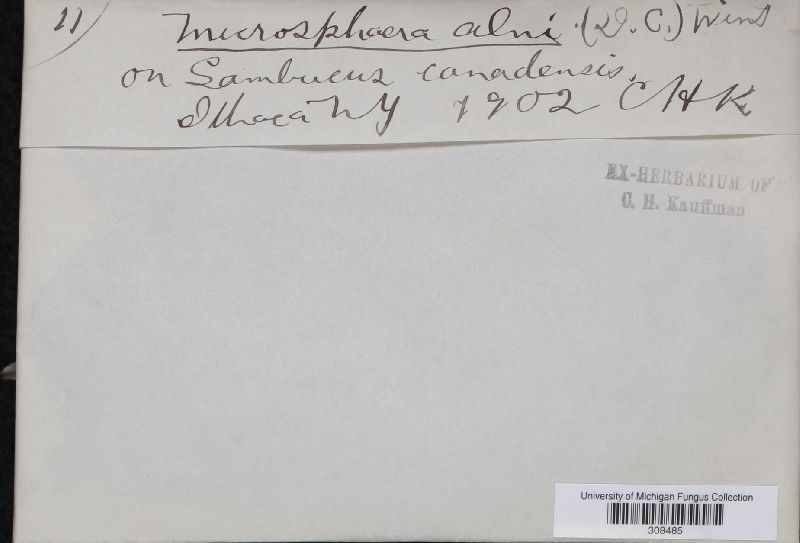 11)
Microsphaera alni (D. C.) Wint
on Sambucus canadensis.
Ithaca NY 1902 CHK.
EX-HERBARIUM OF
C. H. Kauffman
University of Michigan Fungus Collection
308485